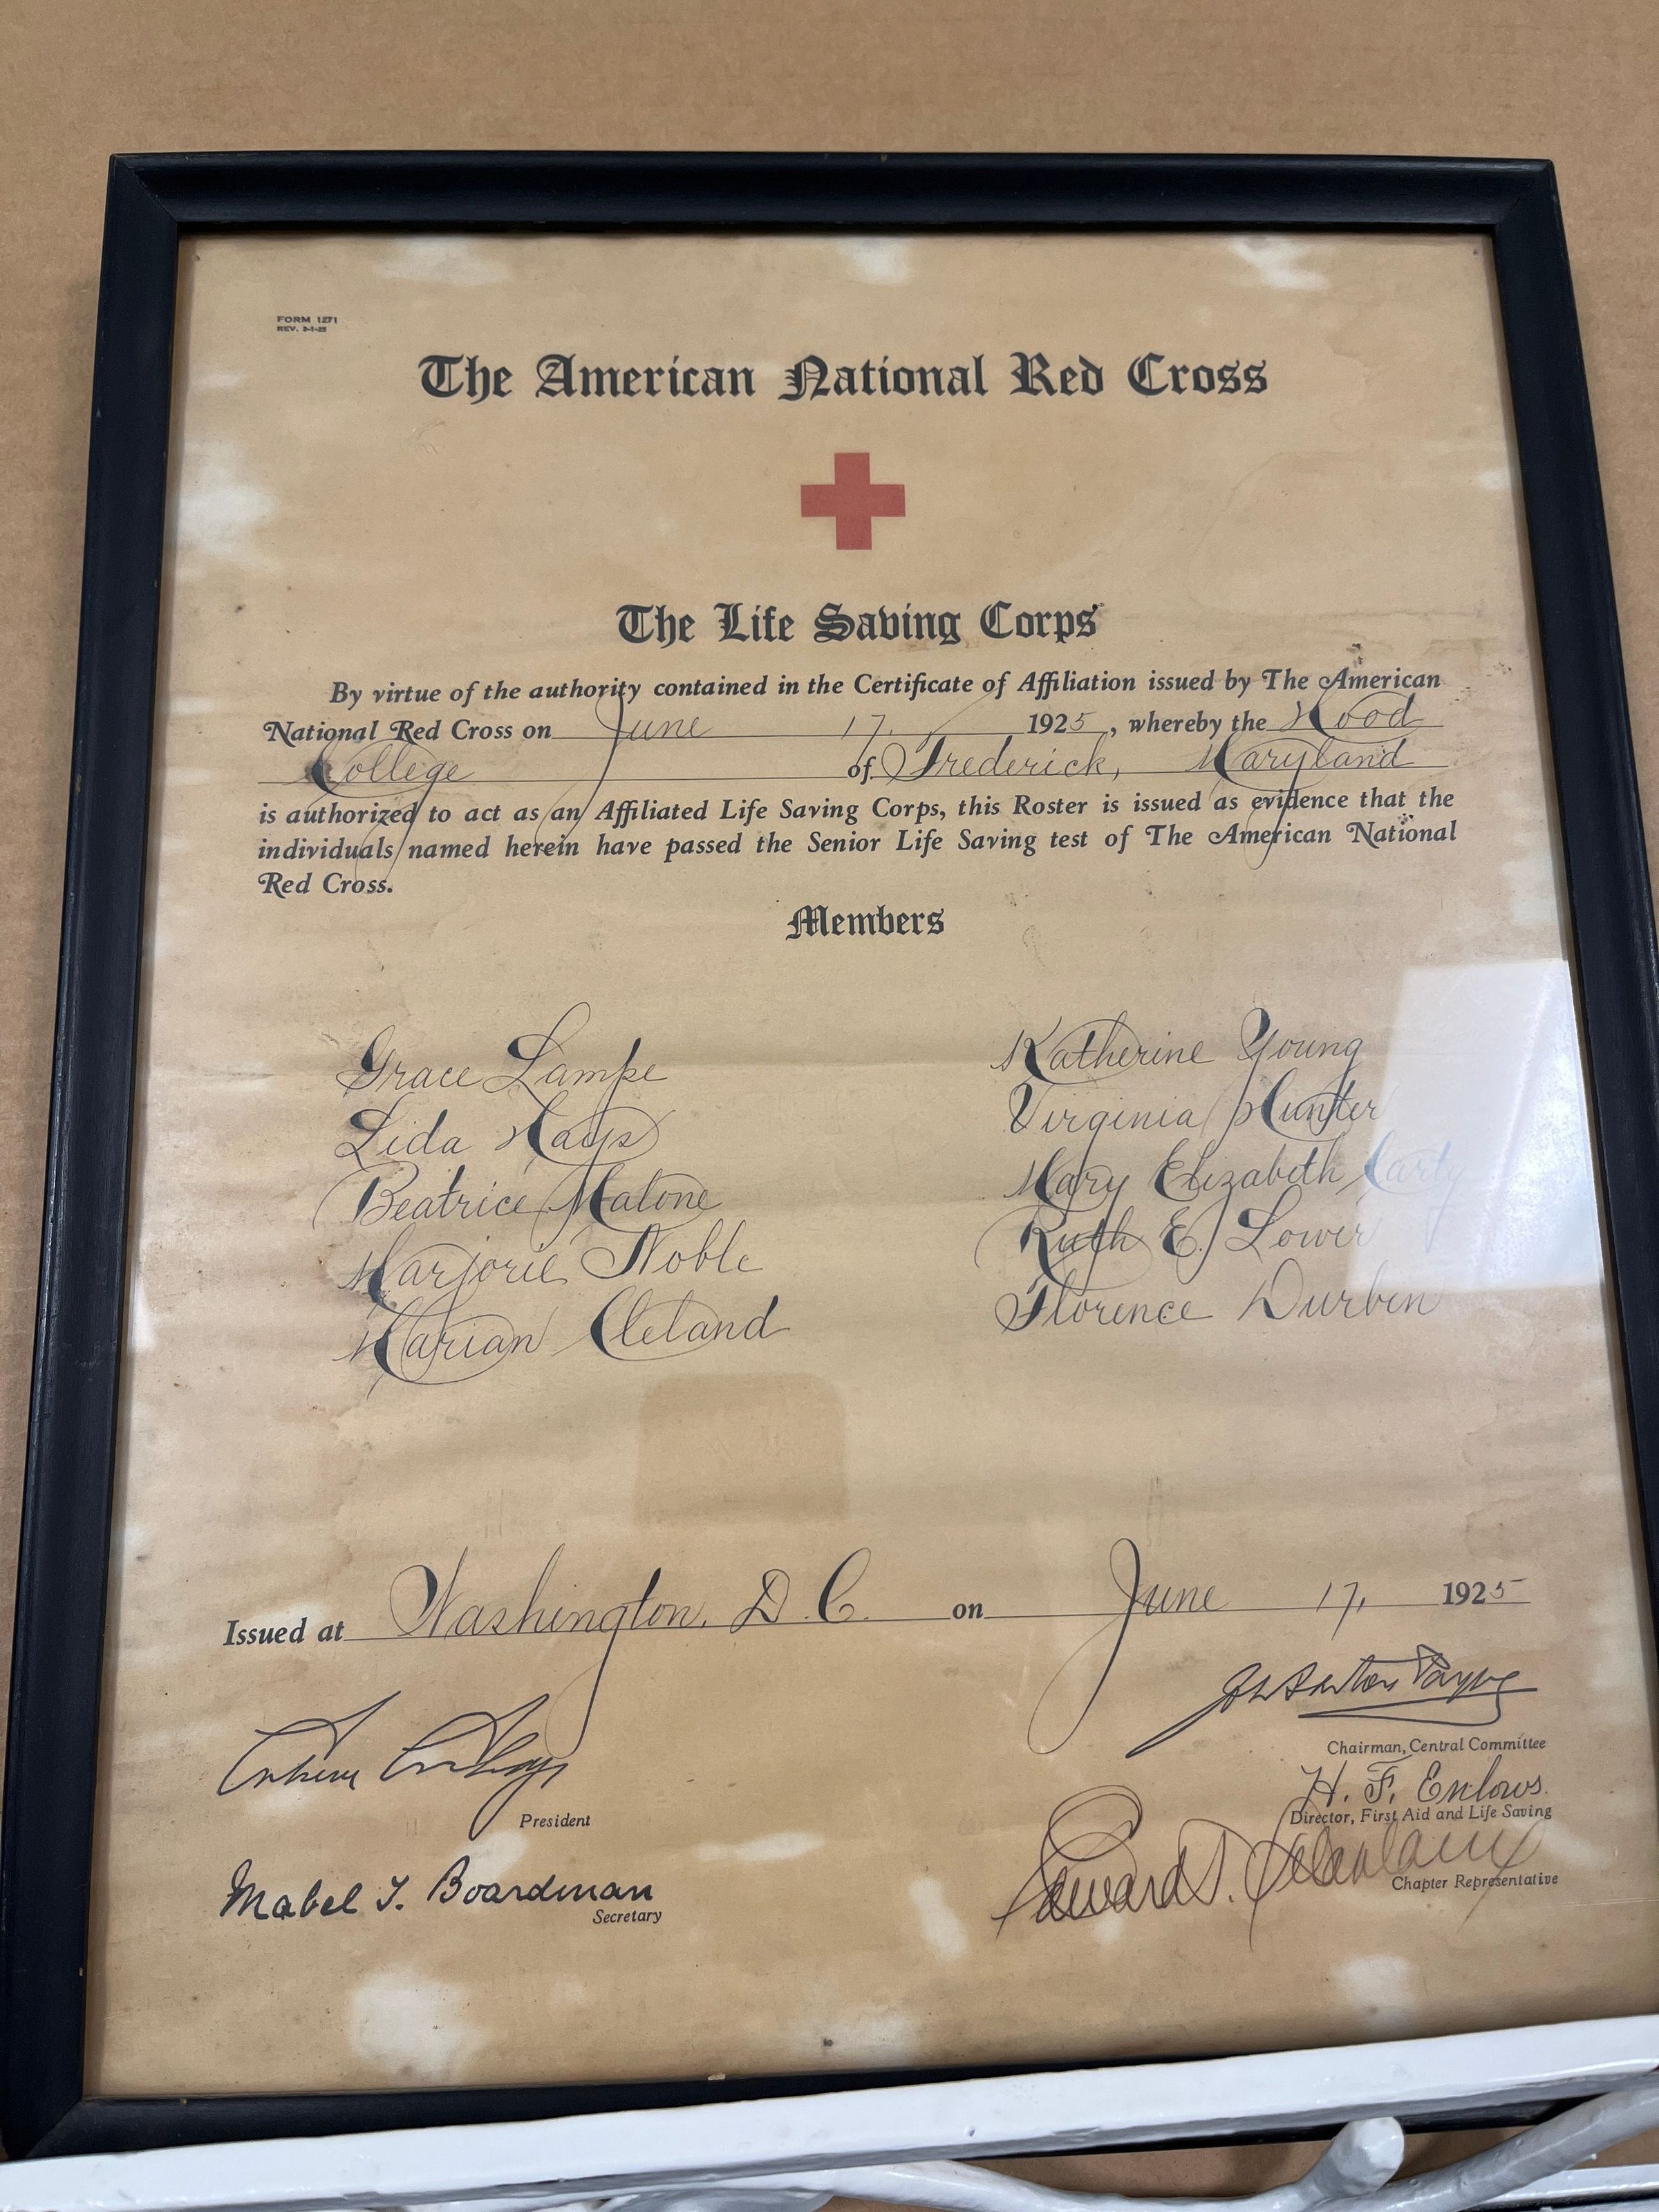 FORM 1271
REV. 3-1-25
The American National Red Cross
The Life Saving Corps
By virtue of the authority contained in the Certificate of Affiliation issued by The American
National Red Cross on June 17, 1925, whereby the Hood
College of Frederick, Maryland
is authorized to act as an Affiliated Life Saving Corps, this Roster is issued as evidence that the
individuals named herein have passed the Senior Life Saving test of The American National
Red Cross.
Members
Grace Lampe
Lida Hays
Beatrice Malone
Marjorie Noble
Marian Cleland
Katherine Young
Virginia Hunter
Mary Elizabeth Carty
Ruth E. Lower
Florence Durbin
Issued at Washington, D. C. on June 17, 1925
President
Mabel T. Boardman
Secretary
John Barton Payne
Chairman, Central Committee
H. F. Enlows.
Director, First Aid and Life Saving
Edward T.
Chapter Representative